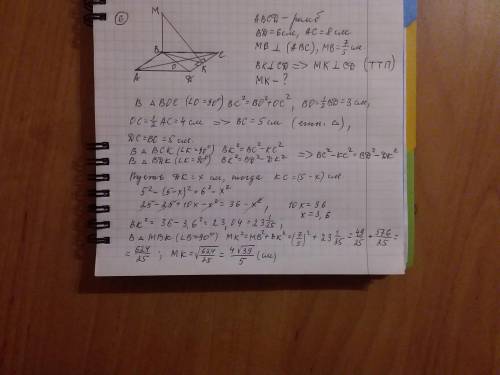 6
M
B
C
A
O
K
D
ABCD – ромб
BD = 6 см, AC = 8 см
MB ⊥ (ABC), MB = 7/5 см
BK ⊥ CD => MK ⊥ CD (ТТП)
MK – ?
В △ BOC (∠O = 90°) BC² = BO² + OC², BO = 1/2 BD = 3 см,
OC = 1/2 AC = 4 см => BC = 5 см (егип. △),
DC = BC = 5 см.
В △ BCK (∠K = 90°) BK² = BC² - KC²
В △ BDK (∠K = 90°) BK² = BD² - DK²
=> BC² - KC² = BD² - DK²
Пусть DK = x см, тогда KC = (5 - x) см
5² - (5 - x)² = 6² - x²
25 - 25 + 10x - x² = 36 - x²,
10x = 36
x = 3,6
BK² = 36 - 3,6² = 23,04 = 23 1/25,
В △ MBK (∠B = 90°) MK² = MB² + BK² = (7/5)² + 23 1/25 = 49/25 + 576/25 =
= 624/25 ; MK = √624/25 = 4√39/5 (см)